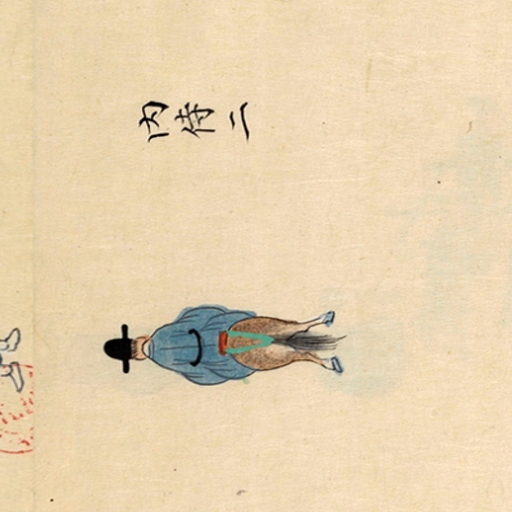 内侍二